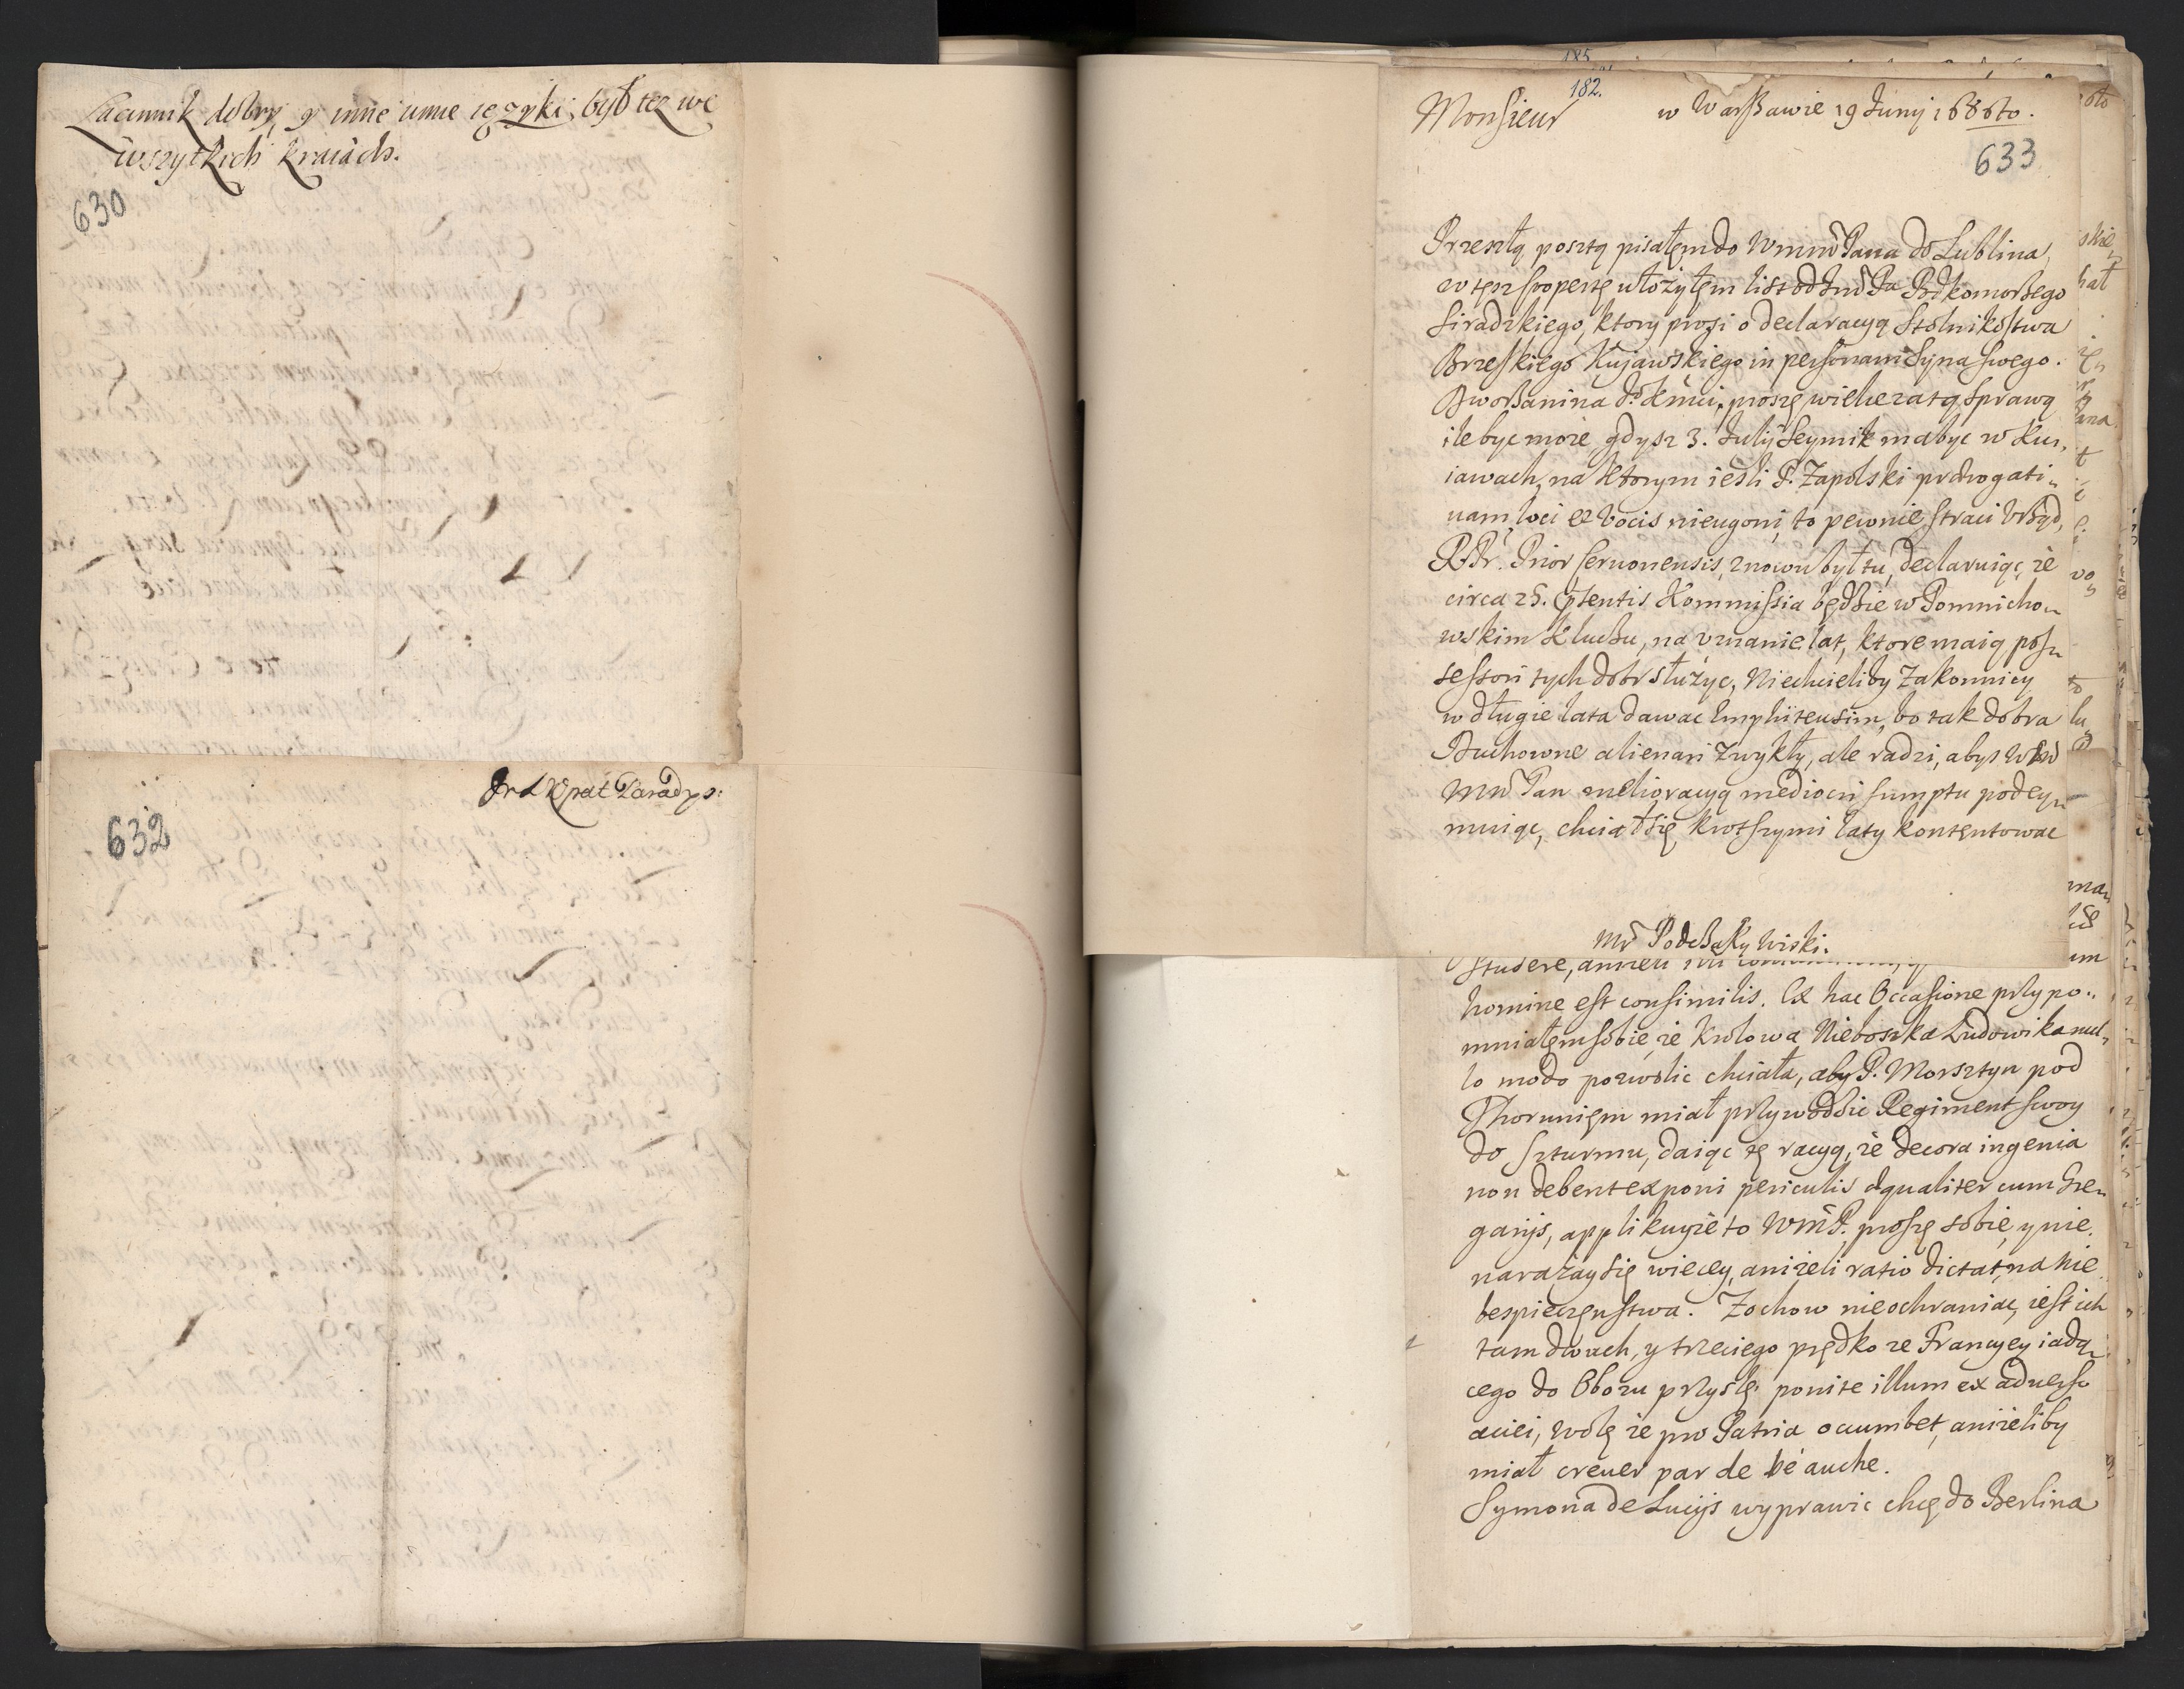 Łacinnik dobry, y inne umie ięzyki, był tez we
wszytkich kraiach.
630
Opat Paradys:
632
185
182.
Monsieur w Warszawie 19 Junij 1686to.
633
Przeszłą posztą pisałęm do WmmPana do Lublina,
w tęsz kopertę ułożyłęm list od Jm Pa Podkomorzego
Siradzkiego, ktory prosi o declaracyą Stolnikostwa
Brzeskiego Kujawskiego in personam Syna swego.
Dworzanina JKMci, proszę wielce za tą sprawą
ile byc może gdysz 3. Julij Seymik ma byc w Kui,
iawach, na ktorym iesli P. Zapolski prærogati,,
uam loci et vocis nieugoni, to pewnie straci Urząd,
R. Pr. Prior Seruonensis, znowu był tu, declaruiąc, ze
circa 25. præsentis Kommissia będzie w Pomnicho,,
wskim Kluczu, na uznanie lat, ktore maią pos,,
sessori tych dobr służyc, Niechcieliby Zakonnicy
w długie lata dawac Emphiteusim, bo tak dobra
Duchowne alienari zwykły, ale radzi, abys W
Mm Pan melioracyą mediocri sumptu podey,,
muiąc, chciał się krotszymi laty kontentowac
Mr Podczaszy Liwski.
studere, anizeli
homine est consimilis. Ex hac Occasione przypo,,
mniałęm sobie, ze Krolowa Nieboszka Ludowika nul,,
lo modo pozwolic chciała, aby P. Morsztyn pod
Thorunięm miał przywodzic Regiment swoy
do szturmu, daiąc tę racyą, ze decora ingenia
non debent exponi periculis æqualiter cum Gre,,
garijs, applikuyze to WmP. proszę sobie, y nie
narażay się wiecey, anizeli ratio dictat, na nie
bespieczęnstwa. Zochow nieochraniac, iest ich
tam dwuch, y trzeciego prędko ze Francyey iadą,,
cego do Obozu przyslę, ponite illum ex aduerso
aciei, wolę ze pro Patria ocumbet, anizeliby
miał creuer par de béauche.
Symona de Lucijs wyprawic chcę do Berlina